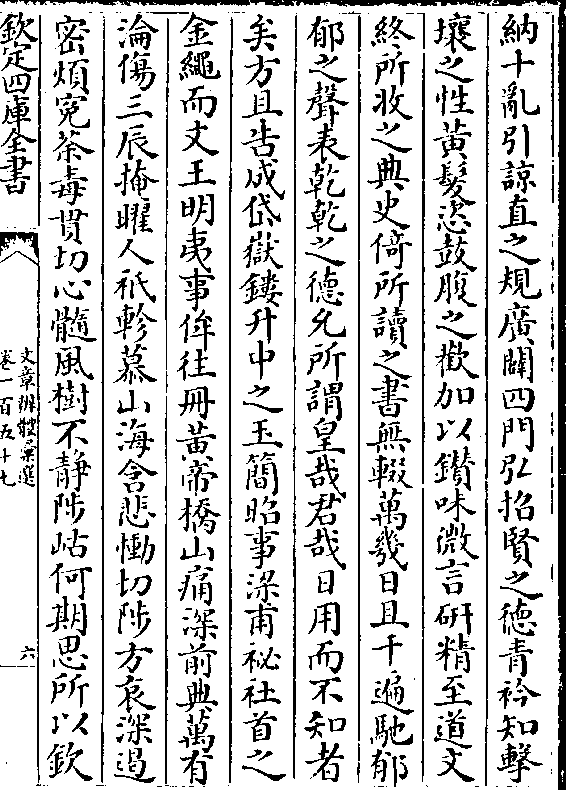 納十亂引諒直之規廣闢四門弘招賢之德青衿知擊
壤之性黃髮恣鼓腹之歡加以鑚味微言研精至道文
終所收之典史倚所讀之書無輟萬幾日且千遍馳郁
郁之聲表乾乾之德允所謂皇哉君哉日用而不知者
矣方且告成岱嶽鏤升中之玉簡昭事梁甫祕社首之
金繩而文王明夷事侔往冊黃帝橋山痛深前典萬有
淪傷三辰掩曜人祇軫慕山海含悲慟切陟方哀深遏
密煩寃荼毒貫切心髓風樹不静陟岵何期思所以欽
欽定四庫全書
文章辨體彚選
卷一百五十七
六